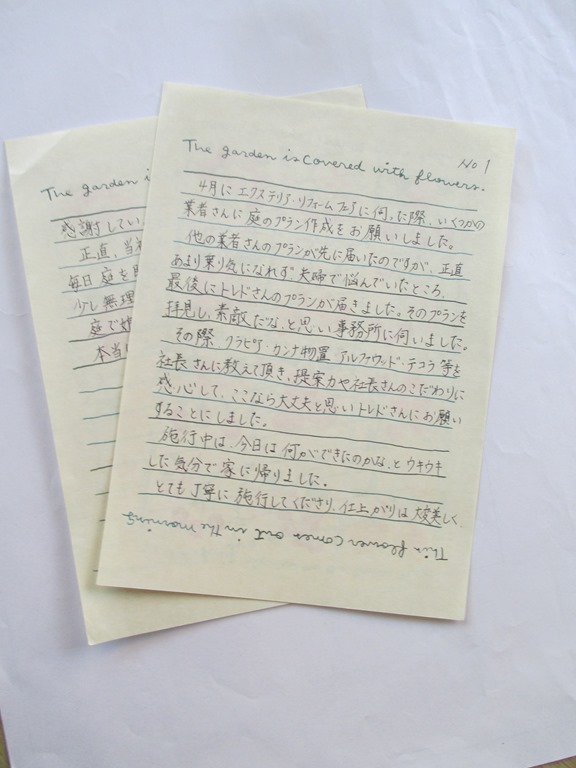 The garden is covered with flowers.
No 1
4月に エクステリア・リフォームフェアに伺った際、いくつかの
業者さんに庭のプラン作成をお願いしました。
他の業者さんのプランが先に届いたのですが、正直
あまり乗り気になれず夫婦で悩んでいたところ、
最後にトレドさんのプランが届きました。そのプランを
拝見し、素敵だな、と思い事務所に伺いました。
その際 クラピア・カンナ物置・アルファウッド・デコラ等を
社長さんに教えて頂き、提案力や社長さんのこだわりに
感心して、ここなら大丈夫と思いトレドさんにお願い
することにしました。
施行中は、今日は何ができたのかな、とウキウキ
した気分で家に帰りました。
とても丁寧に施行してくださり、仕上がりは大変美しく、
This flower comes out in the morning
The garden i
感謝してい
正直、当
毎日庭を
少し無理
庭で
本当